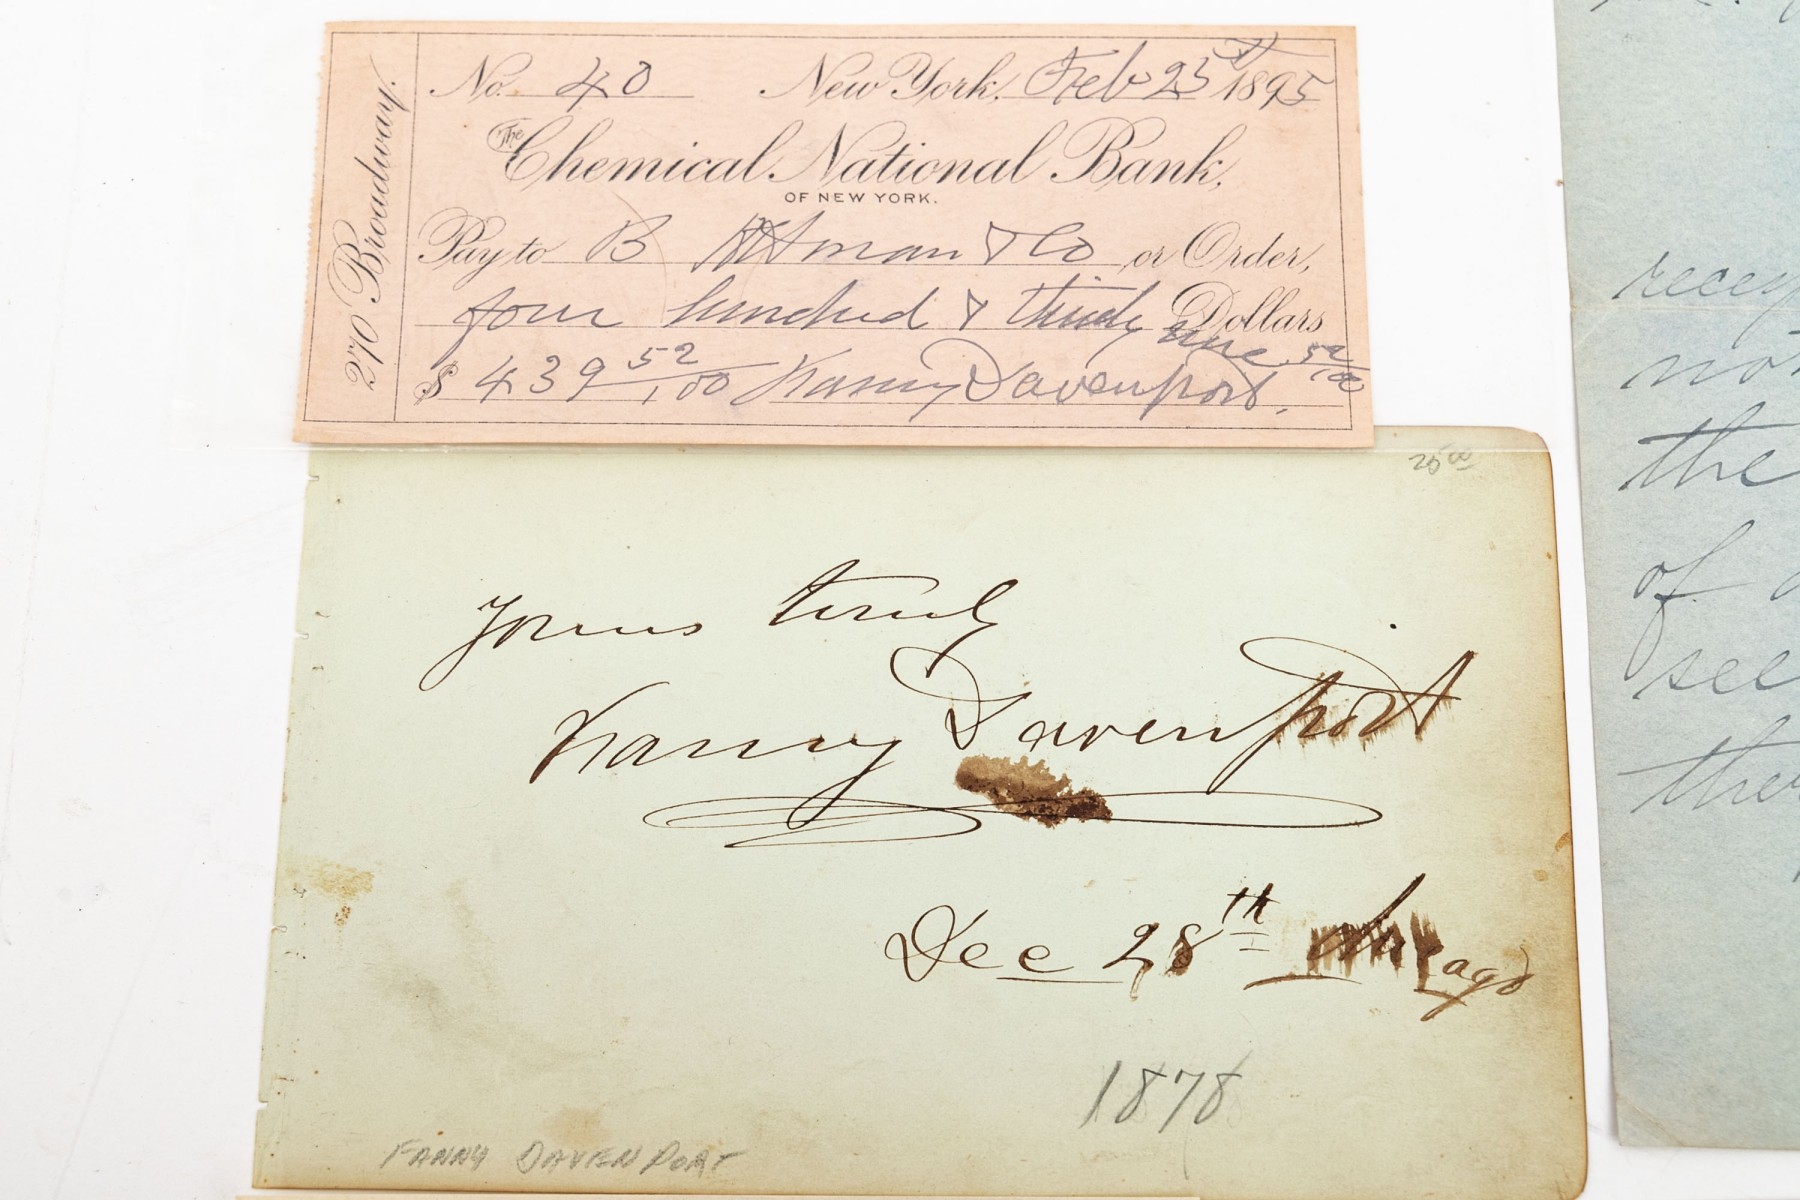 270 Broadway.
No. 40 New York, Feb 25th 1895
The Chemical National Bank,
OF NEW YORK.
Pay to B Altman & Co or Order,
four hundred & thirty nine 52/100 Dollars
$ 439 52/100 Fanny Davenport.
25 00
Yours truly
Fanny Davenport
Dec 28th Chicago
1878
FANNY DAVENPORT
the
of
see